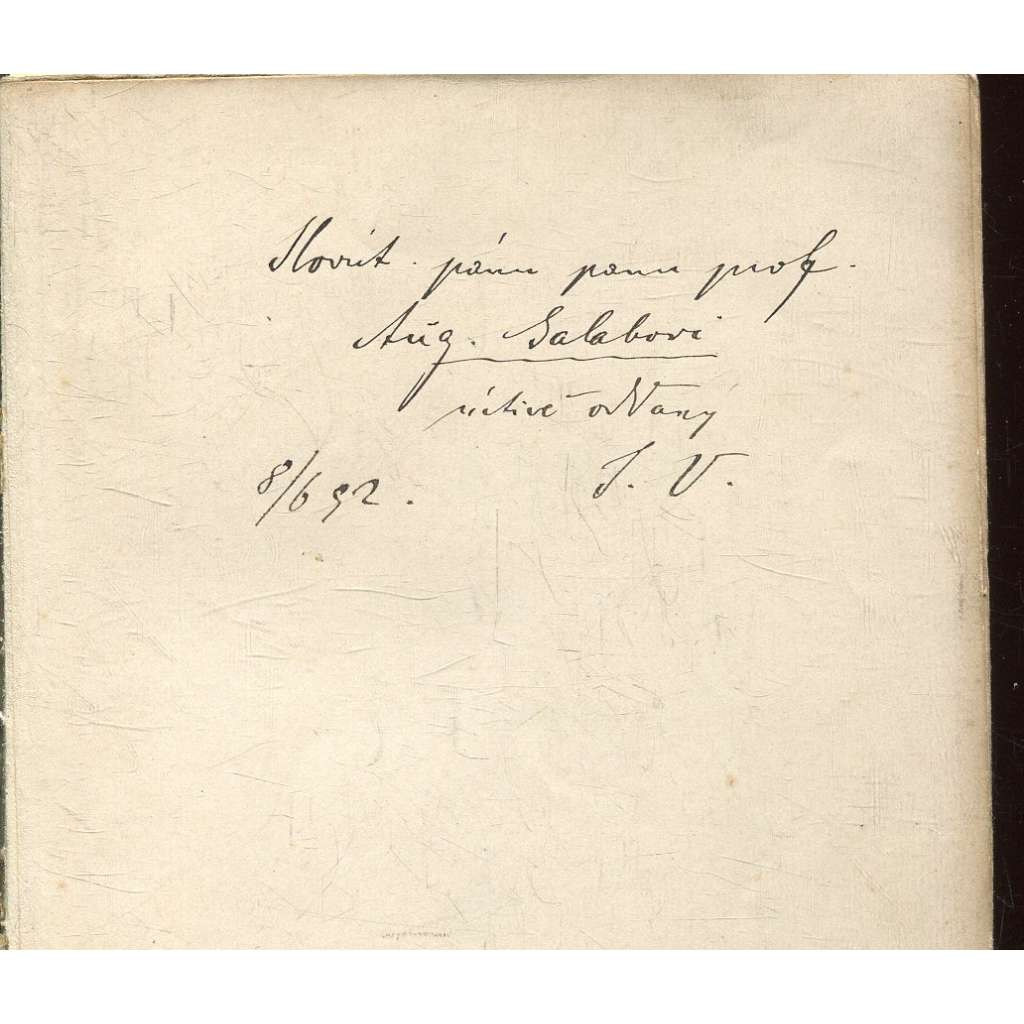 Slovút. pánu panu prof.
Aug. Salabovi
úctivě oddaný
8/6 92. J. V.